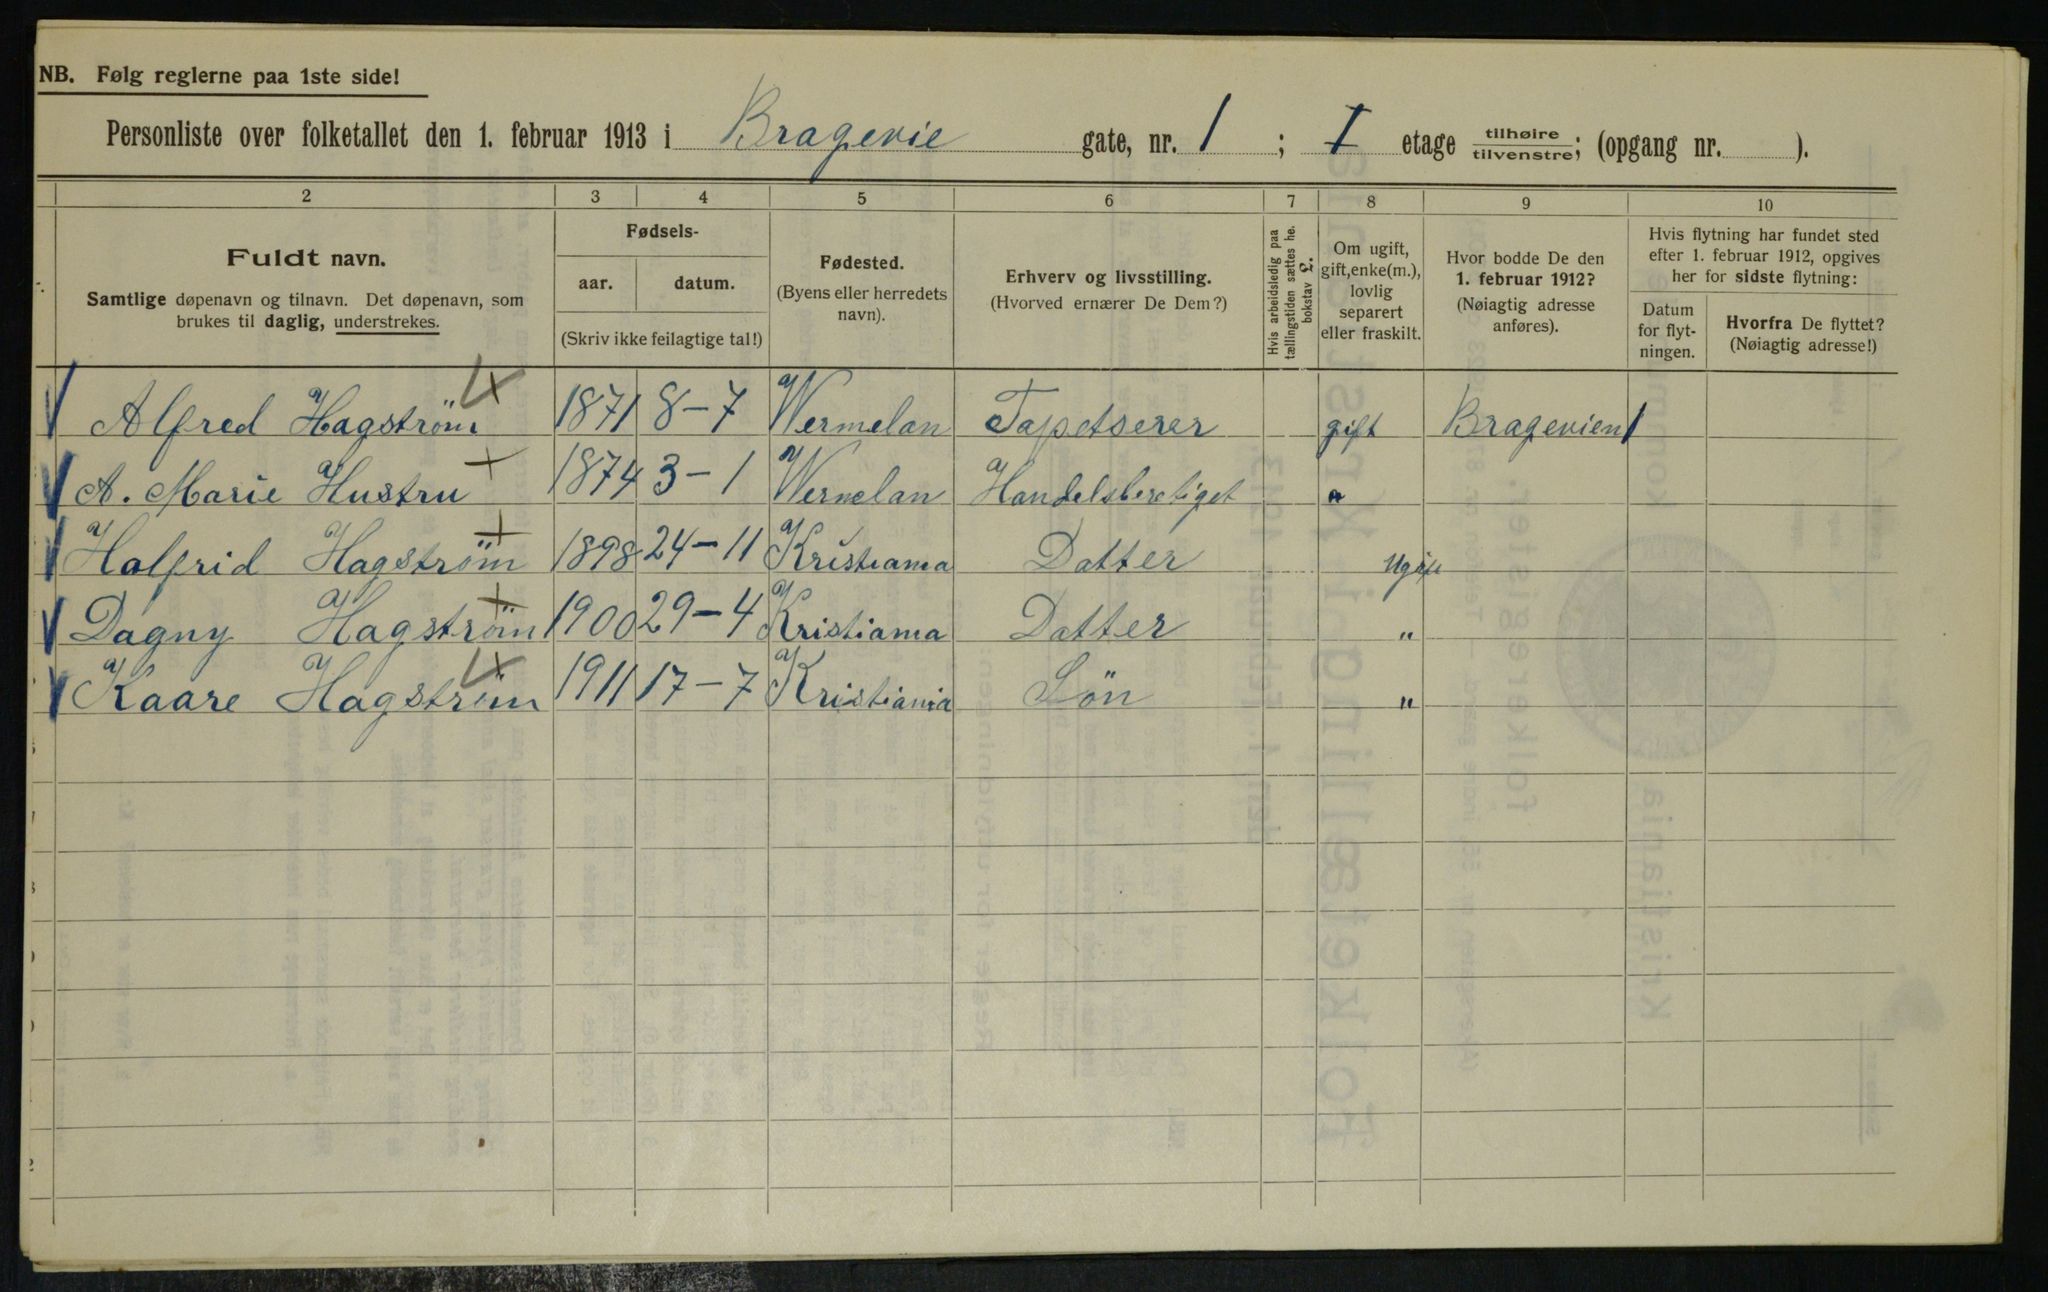 NB. Følg reglerne paa 1ste side!
Personliste over folketallet den 1. februar 1913 i Bragevie gate, nr. 1 ; I etage tilhøire/tilvenstre; (opgang nr. ).
2 3 4 5 6 7 8 9 10
Fuldt navn.
Samtlige døpenavn og tilnavn. Det døpenavn, som
brukes til daglig, understrekes.
Fødsels-
aar. datum.
(Skriv ikke feilagtige tal!)
Fødested.
(Byens eller herredets
navn).
Erhverv og livsstilling.
(Hvorved ernærer De Dem?)
Hvis arbeidsledig paa
tællingstiden sættes he.
bokstav l.
Om ugift,
gift, enke(m.),
lovlig
separert
eller fraskilt.
Hvor bodde De den
1. februar 1912?
(Nøiagtig adresse
anføres).
Hvis flytning har fundet sted
efter 1. februar 1912, opgives
her for sidste flytning:
Datum
for flyt-
ningen.
Hvorfra De flyttet?
(Nøiagtig adresse!)
Alfred Hagström 1871 8-7 Wermelan Tapetserer gift Bragevien 1
A. Marie Hustru 1874 3-1 Wermelan Handelsberetiget "
Halfrid Hagström 1898 24-11 Kristiania Datter Ugift
Dagny Hagström 1900 29-4 Kristiania Datter "
Kaare Hagström 1911 17-7 Kristiania Sön "